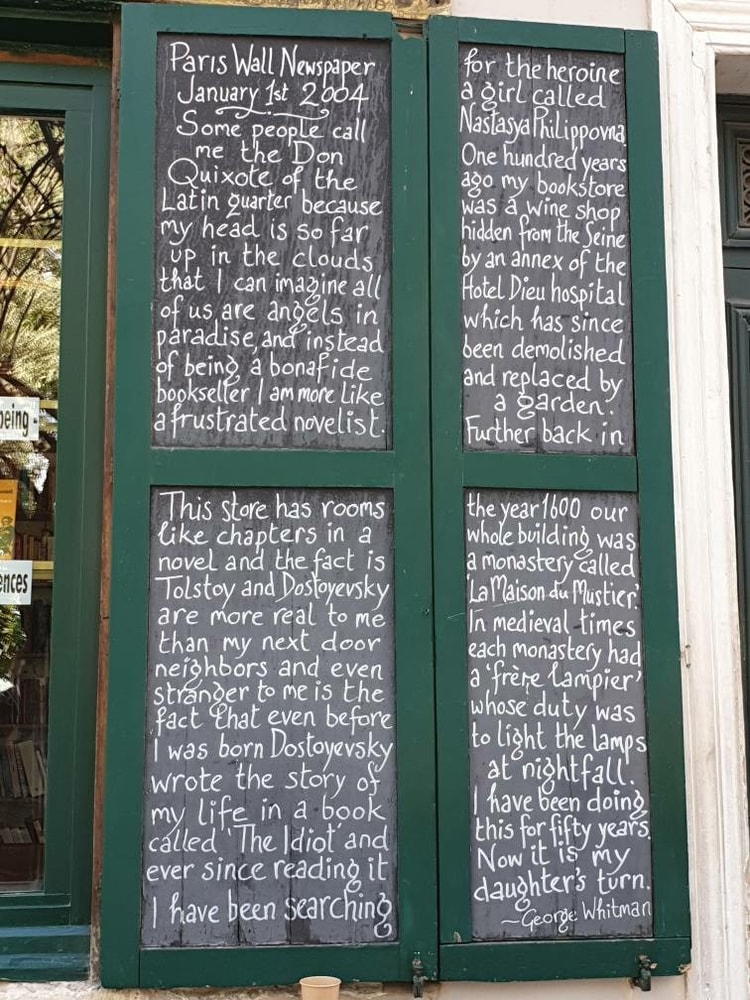 Paris Wall Newspaper
January 1st 2004
Some people call
me the Don
Quixote of the
Latin quarter because
my head is so far
up in the clouds
that I can imagine all
of us are angels in
paradise, and instead
of being a bonafide
bookseller I am more like
a frustrated novelist.
This store has rooms
like chapters in a
novel and the fact is
Tolstoy and Dostoyevsky
are more real to me
than my next door
neighbors and even
stranger to me is the
fact that even before
I was born Dostoyevsky
wrote the story of
my life in a book
called 'The Idiot' and
ever since reading it
I have been searching
for the heroine
a girl called
Nastasya Philippovna.
One hundred years
ago my bookstore
was a wine shop
hidden from the Seine
by an annex of the
Hotel Dieu hospital
which has since
been demolished
and replaced by
a garden.
Further back in
the year 1600 our
whole building was
a monastery called
'La Maison du Mustier'.
In medieval times
each monastery had
a 'frère lampier'
whose duty was
to light the lamps
at nightfall.
I have been doing
this for fifty years.
Now it is my
daughter's turn.
~George Whitman
being -
ences